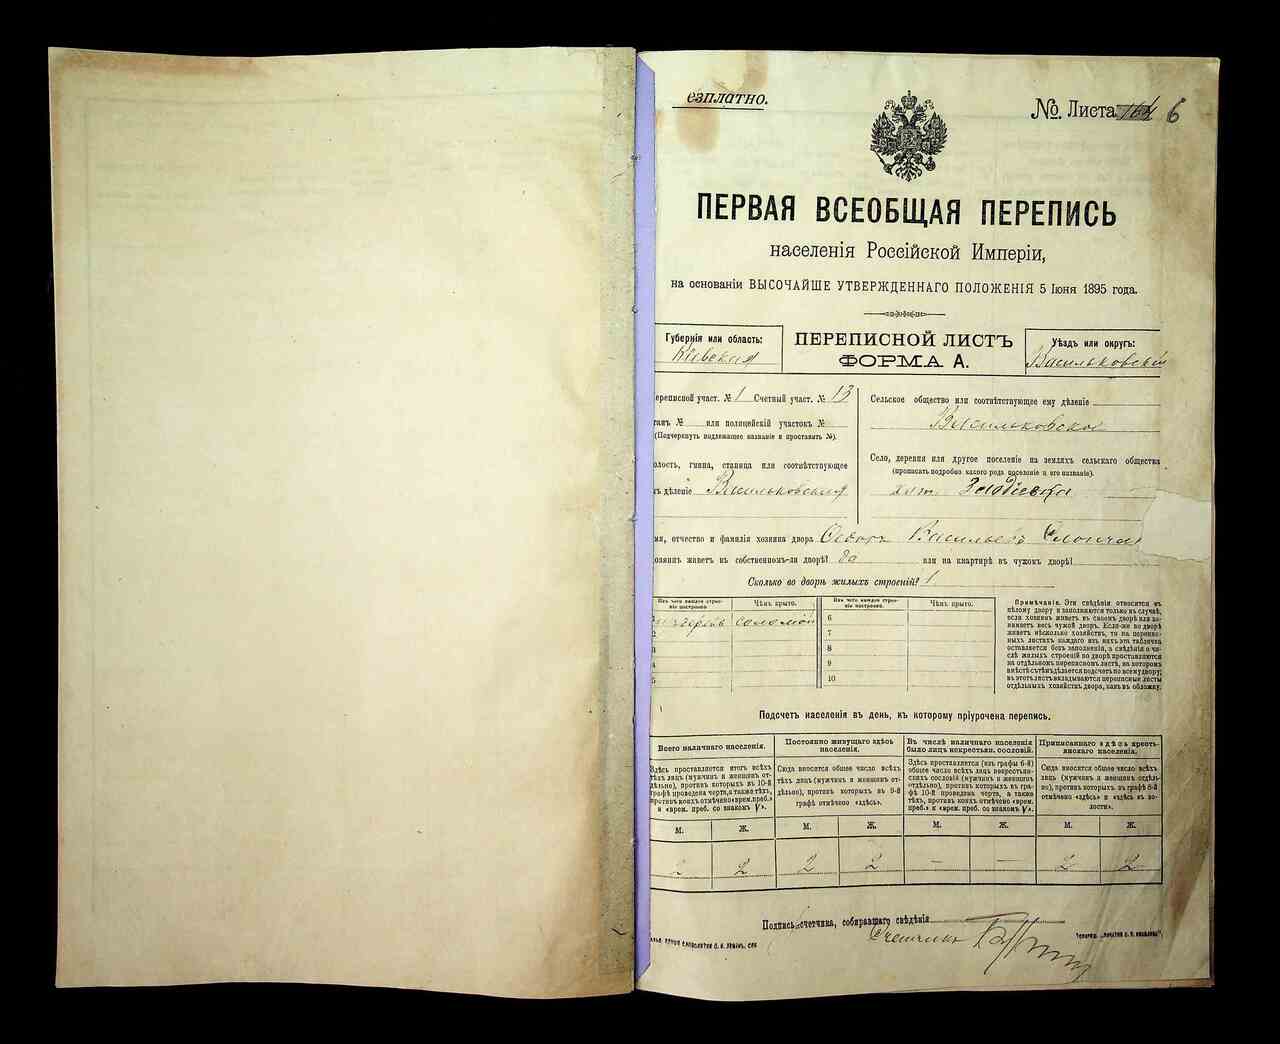 езплатно.
№ Листа 164 6
ПЕРВАЯ ВСЕОБЩАЯ ПЕРЕПИСЬ
населенія Россійской Имперіи,
на основаніи ВЫСОЧАЙШЕ УТВЕРЖДЕННАГО ПОЛОЖЕНІЯ 5 Іюня 1895 года.
Губернія или область:
Кіевская
ПЕРЕПИСНОЙ ЛИСТЪ
ФОРМА А.
Уѣздъ или округъ:
Васильковскій
ереписной участ. № 1 Счетный участ. № 13
танъ № или полицейскій участокъ №
(Подчеркнуть подлежащее названіе и проставить №).
олость, гмина, станица или соотвѣтствующее
ъ дѣленіе Васильковская
Сельское общество или соотвѣтствующее ему дѣленіе
Васильковское
Село, деревня или другое поселеніе на земляхъ сельскаго общества
(прописать подробно какого рода поселеніе и его названіе).
хут.
мя, отчество и фамилія хозяина двора Ѳедоръ Васильевъ
озяинъ живетъ въ собственномъ-ли дворѣ? да или на квартирѣ въ чужомъ дворѣ?
Сколько во дворѣ жилыхъ строеній? 1
Изъ чего каждое строе-
ніе построено
Чѣмъ крыто.
Изъ чего каждое строе-
ніе построено
Чѣмъ крыто.
соломой
6
2
7
3
8
4
9
5
10
Примѣчаніе. Эти свѣдѣнія относятся къ
цѣлому двору и заполняются только въ случаѣ,
если хозяинъ живетъ въ своемъ дворѣ или за-
нимаетъ весь чужой дворъ. Если-же во дворѣ
живетъ нѣсколько хозяйствъ, то на перепис-
ныхъ листахъ каждаго изъ нихъ эта табличка
оставляется безъ заполненія, а свѣдѣнія о чи-
слѣ жилыхъ строеній во дворѣ проставляются
на отдѣльномъ переписномъ листѣ, на которомъ
вмѣстѣ съ тѣмъ дѣлается подсчетъ по всему двору;
въ этотъ листъ вкладываются переписные листы
отдѣльныхъ хозяйствъ двора, какъ въ обложку.
Подсчетъ населенія въ день, къ которому пріурочена перепись.
Всего наличнаго населенія.
Постоянно живущаго здѣсь
населенія.
Въ числѣ наличнаго населенія
было лицъ некрестьян. сословій.
Приписаннаго здѣсь кресть-
янскаго населенія.
Здѣсь проставляется итогъ всѣхъ
тѣхъ лицъ (мужчинъ и женщинъ от-
дѣльно), противъ которыхъ въ 10-й
графѣ проведена черта, а также тѣхъ,
противъ коихъ отмѣчено «врем. преб.»
и «врем. преб. со знакомъ V».
Сюда вносится общее число всѣхъ
тѣхъ лицъ (мужчинъ и женщинъ от-
дѣльно), противъ которыхъ въ 9-й
графѣ отмѣчено «здѣсь».
Здѣсь проставляется (изъ графы 6-й)
общее число всѣхъ лицъ некрестьян-
скихъ сословій (мужчинъ и женщинъ
отдѣльно), противъ которыхъ въ гра-
фѣ 10-й проведена черта, а также
тѣхъ, противъ коихъ отмѣчено «врем.
преб.» и «врем. преб. со знакомъ V».
Сюда вносится общее число всѣхъ
лицъ (мужчинъ и женщинъ отдѣль-
но), противъ которыхъ въ графѣ 8-й
отмѣчено «здѣсь» и «здѣсь въ во-
лости».
М. Ж. М. Ж. М. Ж. М. Ж.
2 2 2 2 — — 2 2
Подпись счетчика, собиравшаго свѣдѣнія
Счетчикъ